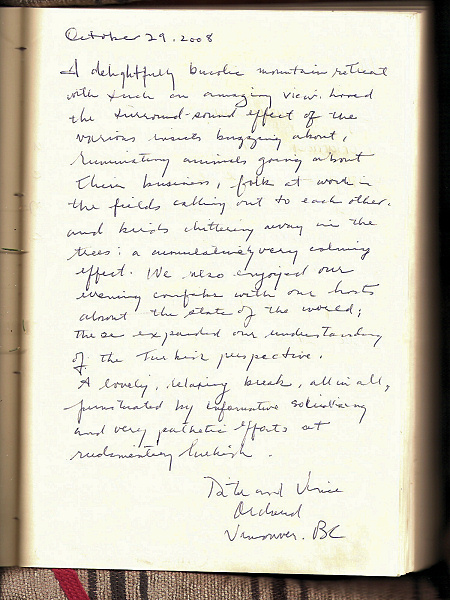 October 29. 2008
A delightfully bucolic mountain retreat
with such an amazing view. Loved
the surround-sound effect of the
various insects buzzing about,
ruminating animals going about
their business, folk at work in
the fields calling out to each other.
and birds chittering away in the
trees: a cumulatively very calming
effect. We also enjoyed our
evening confabs with our hosts
about the state of the world;
these expanded our understanding
of the Turkish perspective.
A lovely, relaxing break, all in all,
punctuated by informative socialising
and very pathetic efforts at
rudimentary Turkish.
and
Vancouver. BC